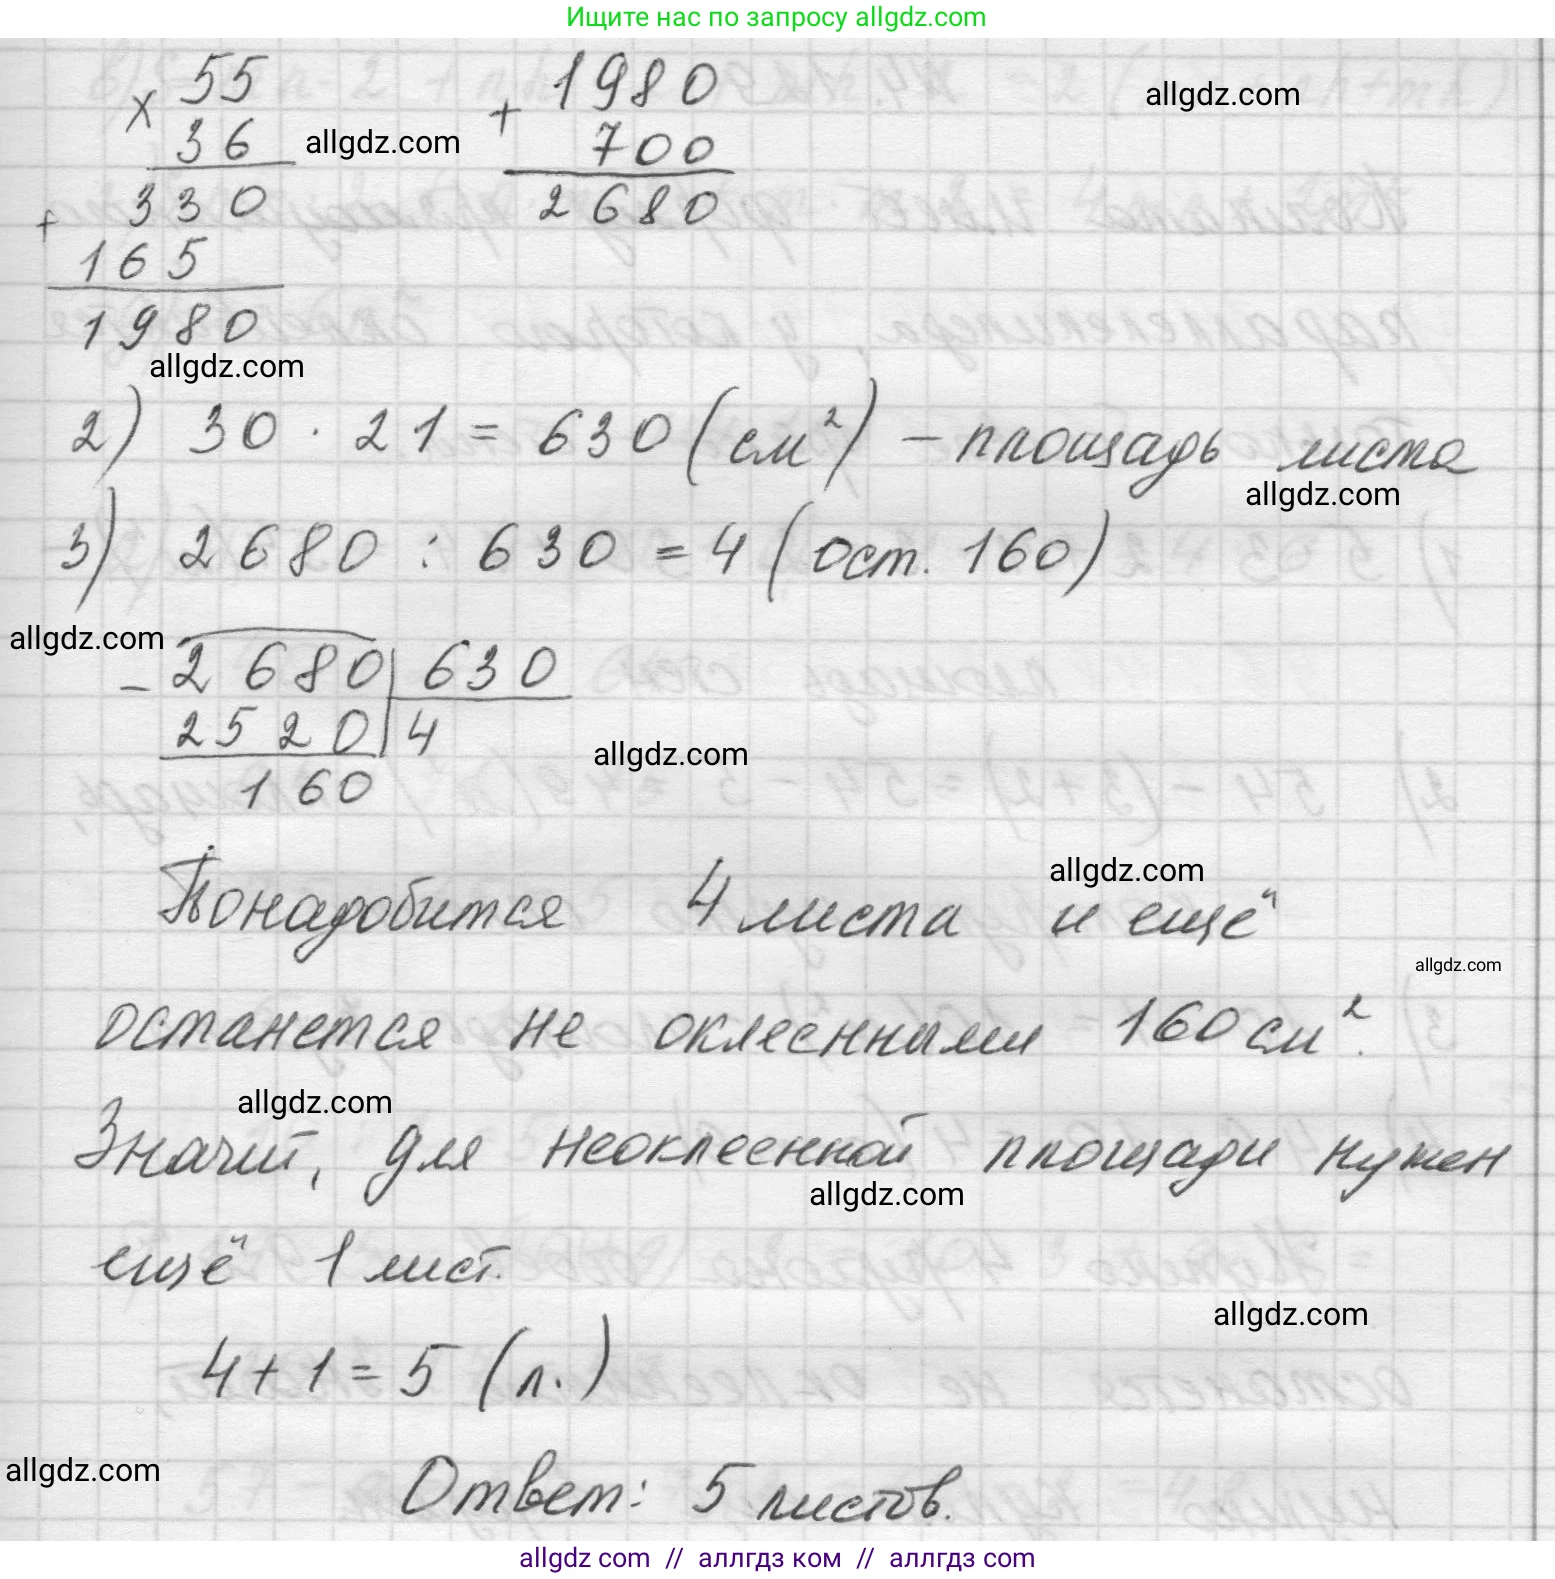 Ищите нас по запросу allgdz.com
× 55
36
+ 330
165
1980
+ 1980
700
2680
allgdz.com
allgdz.com
allgdz.com
2) 30 · 21 = 630 (см²) – площадь листа
allgdz.com
3) 2680 : 630 = 4 (ост. 160)
allgdz.com
– 2680 | 630
2520 | 4
160
allgdz.com
allgdz.com
Понадобится 4 листа и ещё
allgdz.com
останется не оклеенными 160 см².
allgdz.com
Значит, для неоклеенной площади нужен
allgdz.com
ещё 1 лист.
allgdz.com
4 + 1 = 5 (л.)
allgdz.com
Ответ: 5 листов.
allgdz com // аллгдз ком // аллгдз com